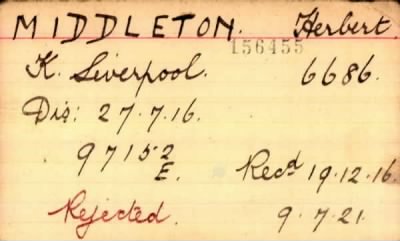 MIDDLETON. Herbert
156455
K. Liverpool. 6686.
Dis: 27.7.16.
97152
E. Recd 19.12.16.
Rejected. 9.7.21.